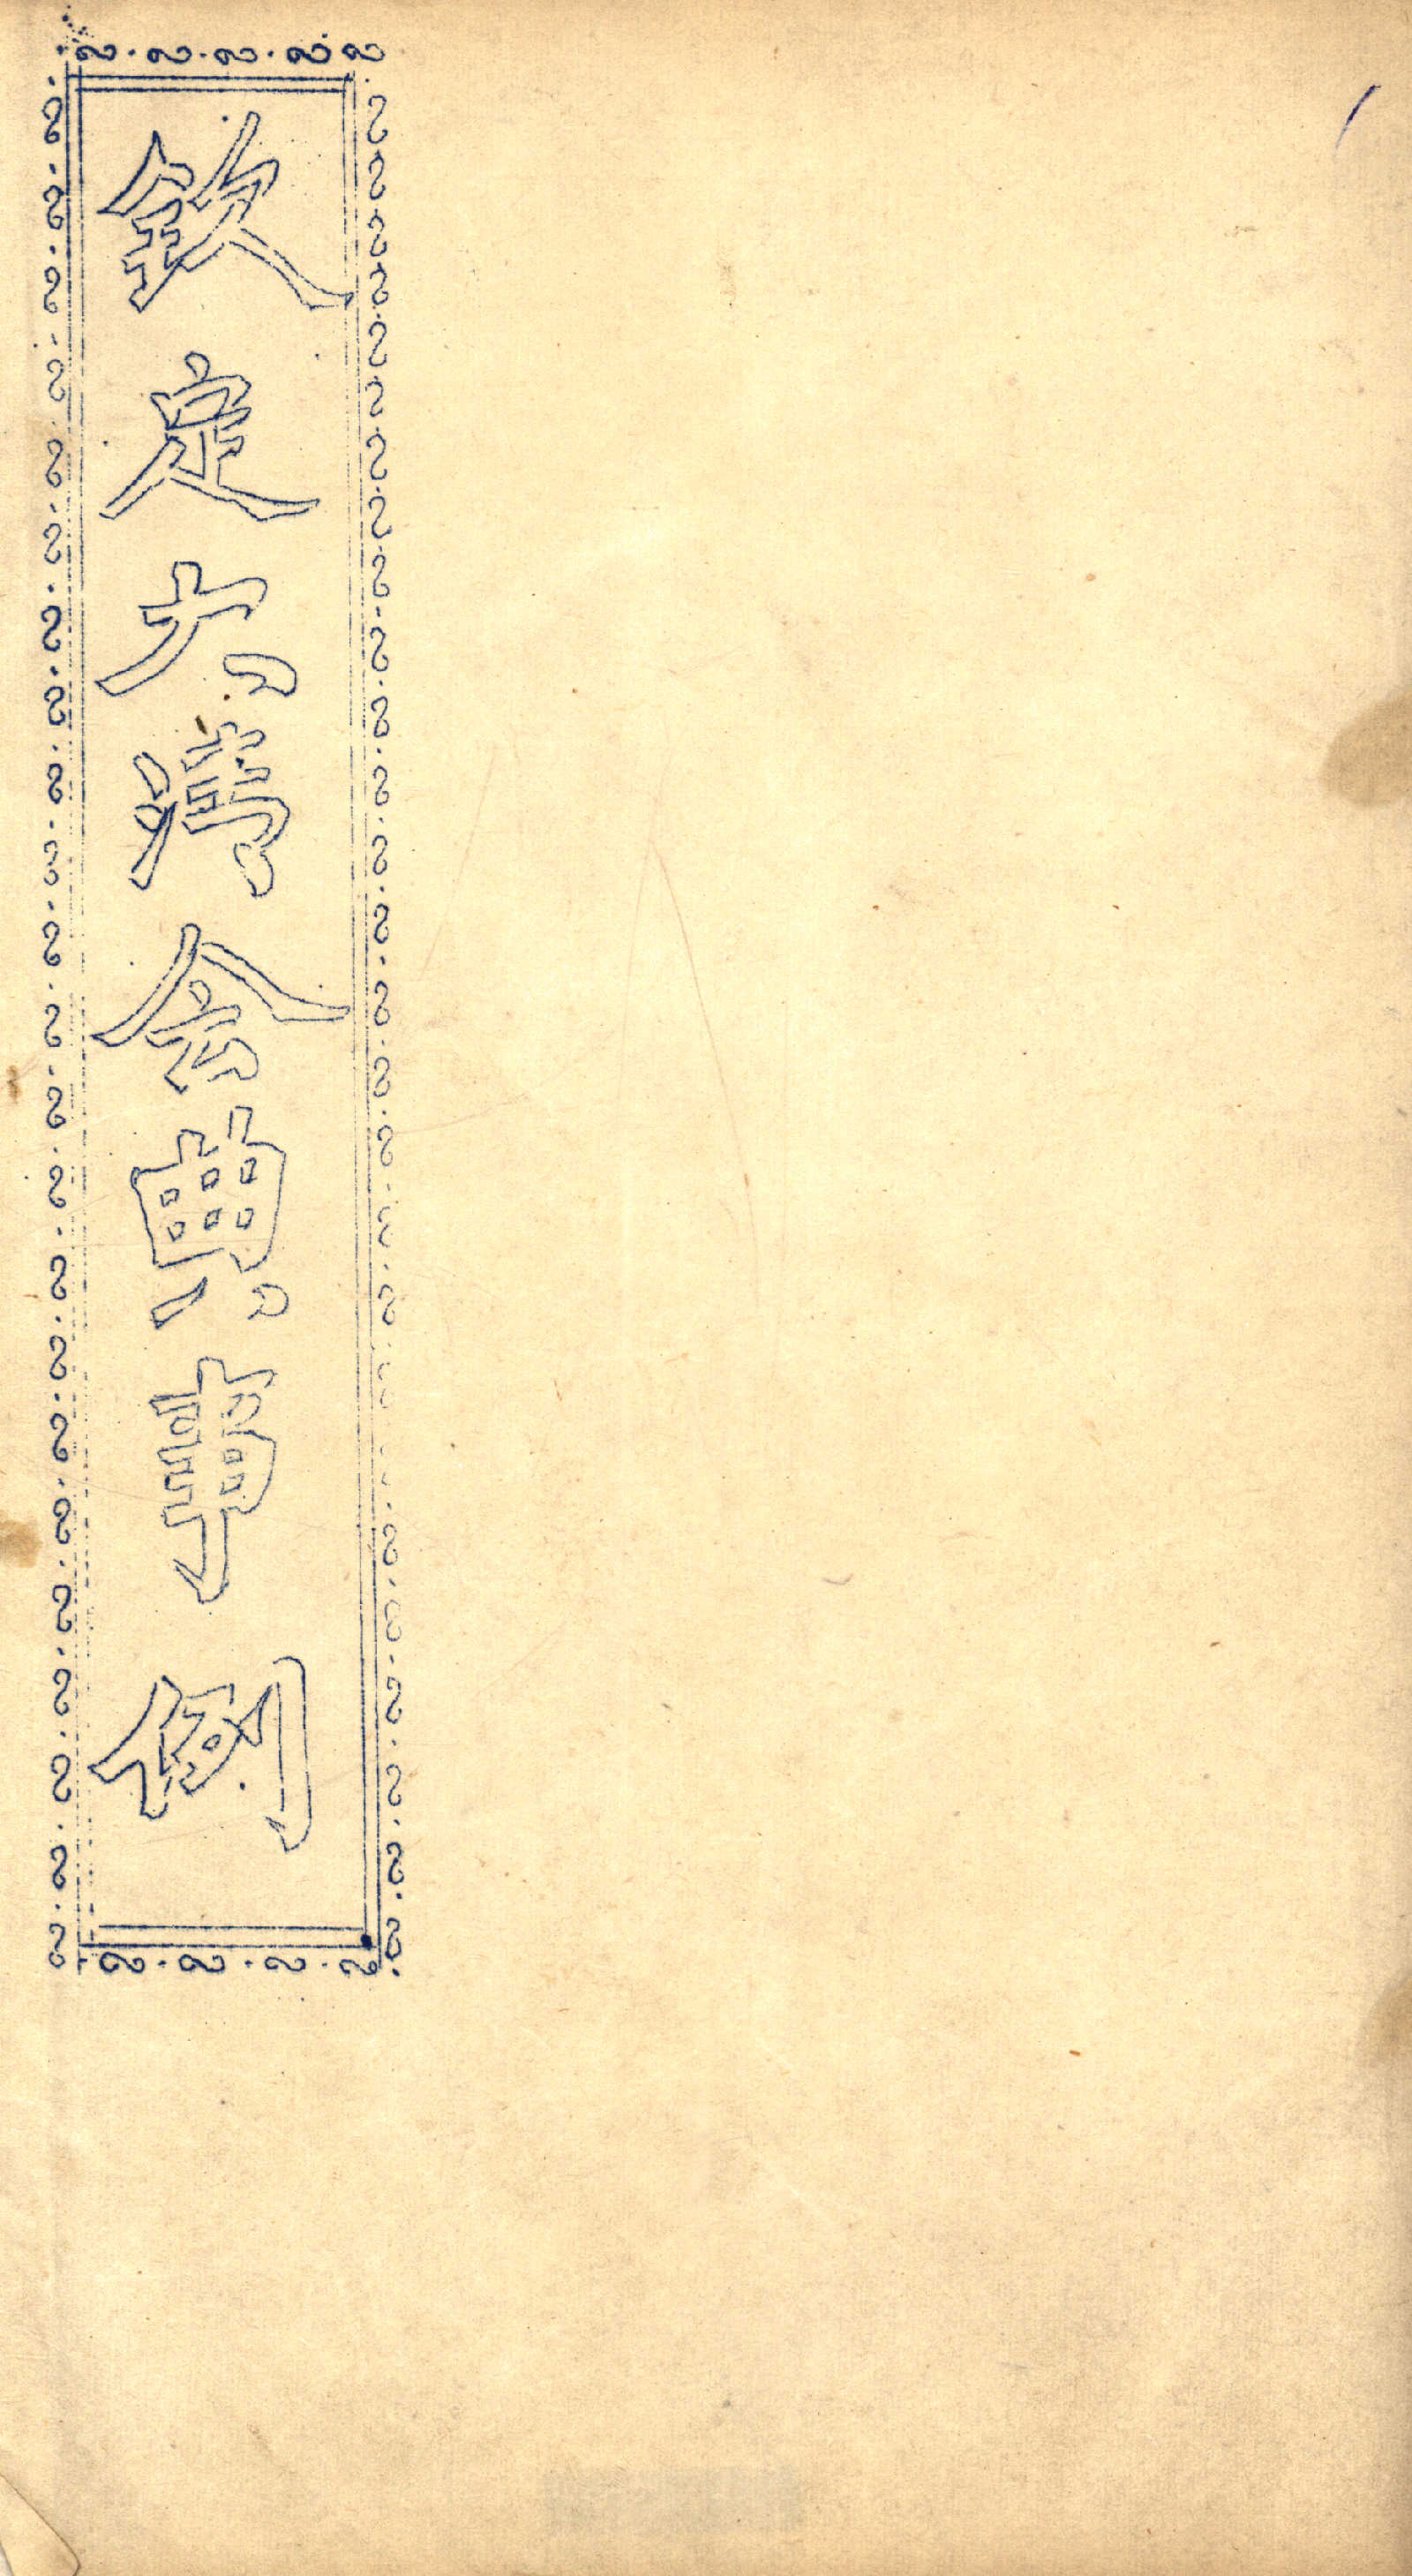 欽定大清會典事例